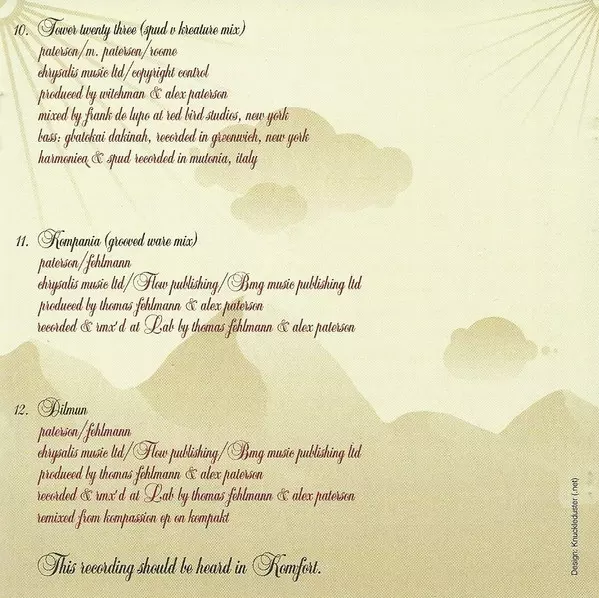 10. Tower twenty three (spud v kreature mix)
paterson/m. paterson/roome
chrysalis music ltd/copyright control
produced by witchman & alex paterson
mixed by frank de lupo at red bird studios, new york
bass: gbatokai dakinah, recorded in greenwich, new york
harmonica & spud recorded in mutonia, italy
11. Kompania (grooved ware mix)
paterson/fehlmann
chrysalis music ltd/Flow publishing/Bmg music publishing ltd
produced by thomas fehlmann & alex paterson
recorded & rmx'd at Lab by thomas fehlmann & alex paterson
12. Dilmun
paterson/fehlmann
chrysalis music ltd/Flow publishing/Bmg music publishing ltd
produced by thomas fehlmann & alex paterson
recorded & rmx'd at Lab by thomas fehlmann & alex paterson
remixed from kompassion ep on kompakt
This recording should be heard in Komfort.
Design: Knuckleduster (.net)